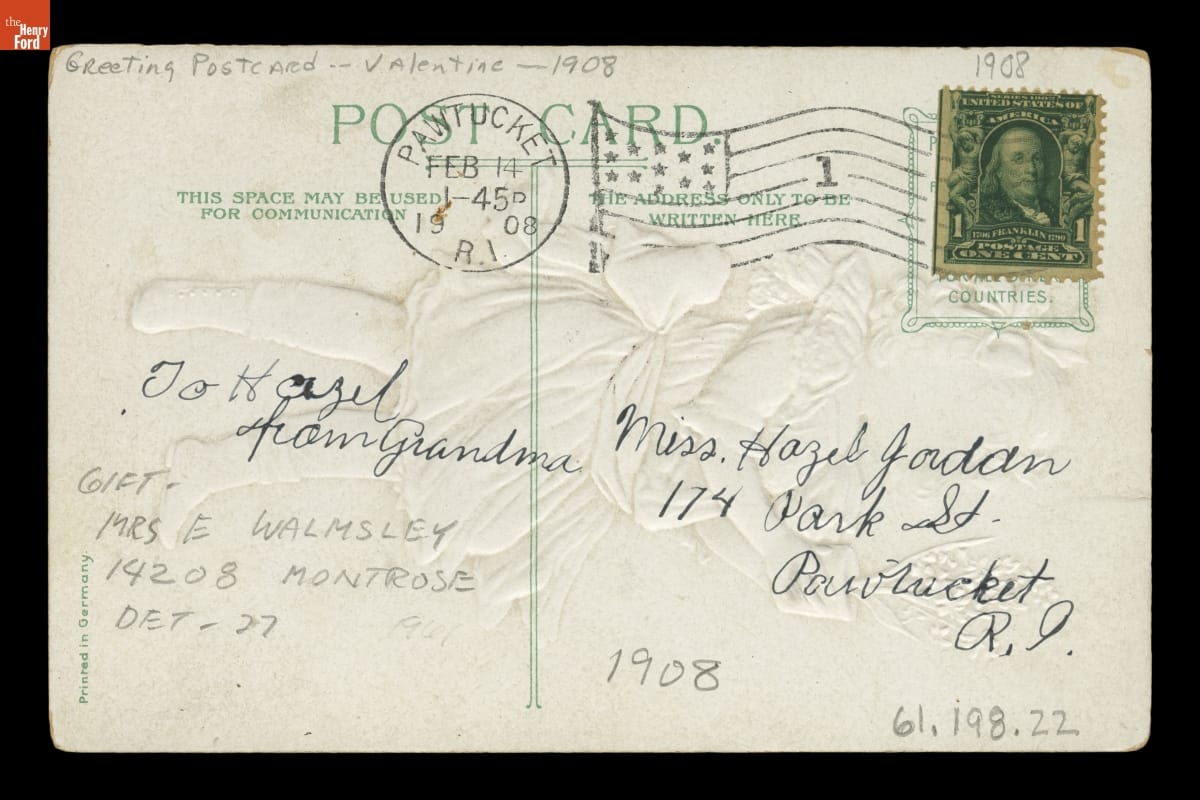 the
Henry
Ford
Greeting Postcard -- Valentine — 1908
1908
POST CARD.
PAWTUCKET
FEB 14
1-45P
19 08
R.I.
1
THIS SPACE MAY BE USED
FOR COMMUNICATION
THE ADDRESS ONLY TO BE
WRITTEN HERE.
SERIES 1902
UNITED STATES OF
AMERICA
1 1
1706 FRANKLIN 1790
POSTAGE
ONE CENT
COUNTRIES.
To Hazel
from Grandma
Miss. Hazel Jordan
174 Park St.
Pawtucket
R. I.
GIFT -
MRS E WALMSLEY
14208 MONTROSE
DET - 27
Printed in Germany
1908
61.198.22